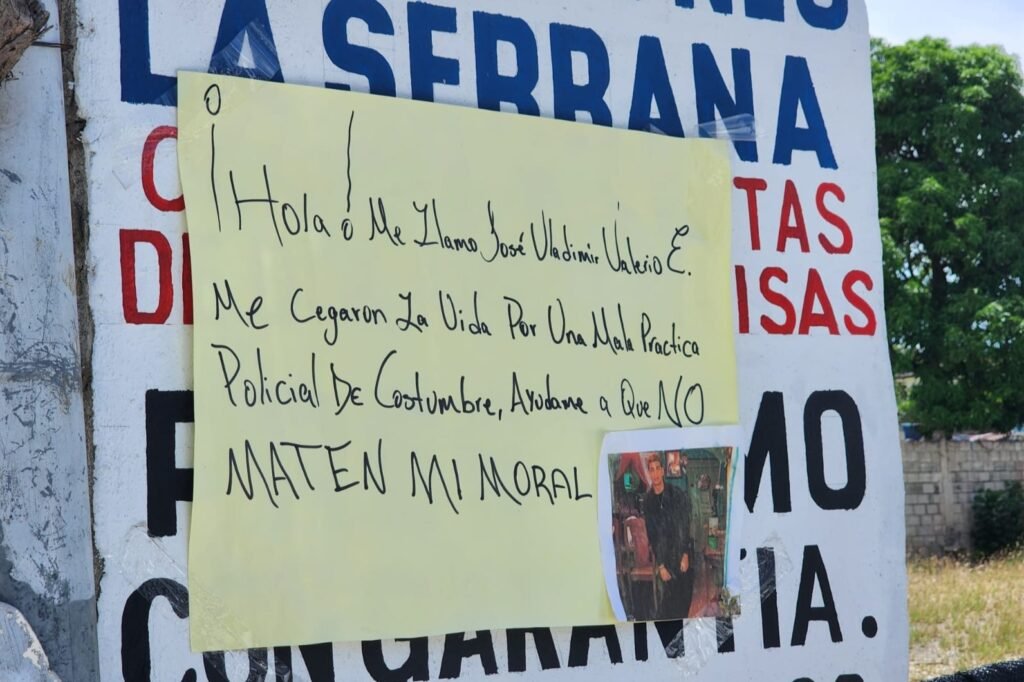 LA SERRANA
¡Hola! Me Llamo José Vladimir Valerio E.
Me Cegaron La Vida Por Una Mala Practica
Policial De Costumbre, Ayudame a Que NO
MATEN MI MORAL
TAS
ISAS
MO
CON GARANTIA.